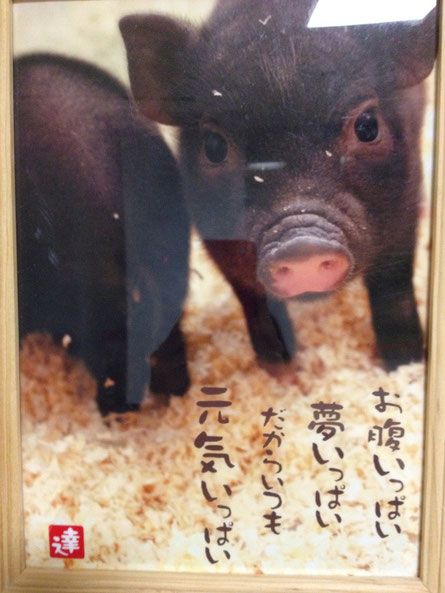 お腹いっぱい
夢いっぱい
だからいつも
元気いっぱい
達